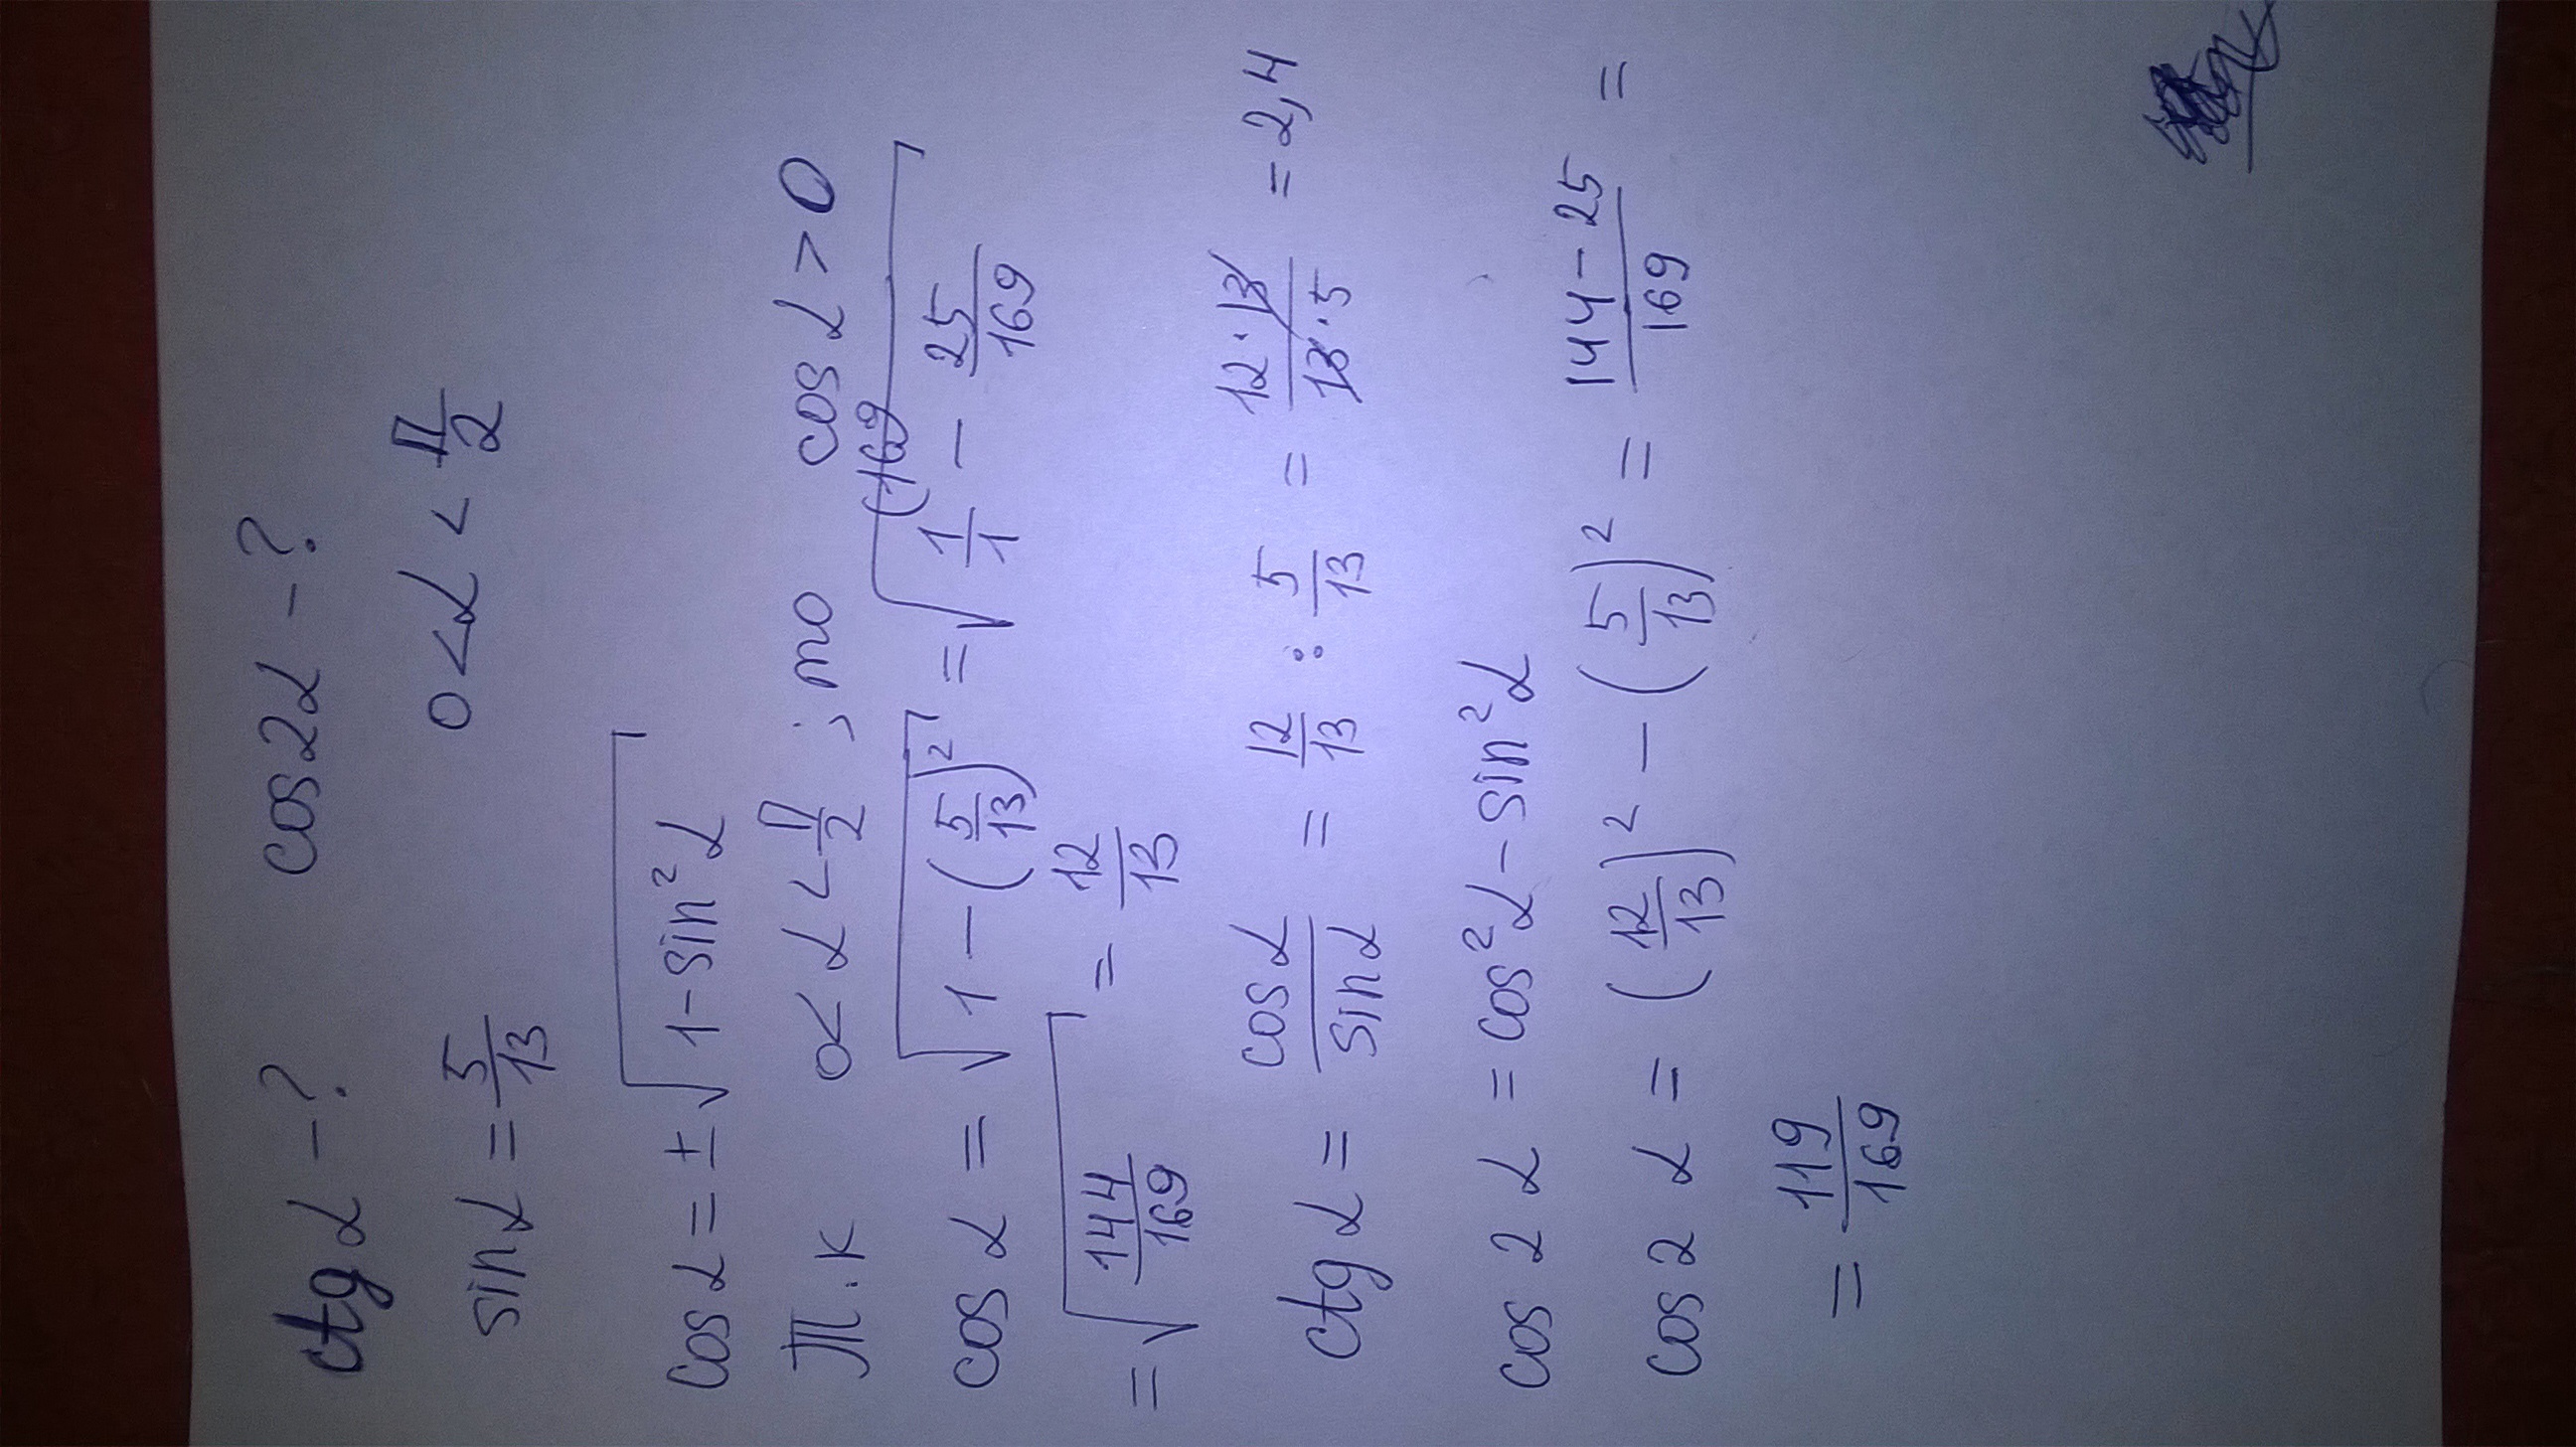 ctg α - ? cos2α - ?
sin α = 5/13 0 < α < π/2
cos α = ± √(1 - sin²α)
Т.к 0 < α < π/2 ; то cos α > 0
cos α = √(1 - (5/13)²) = √(1/1 (169 - 25/169)
= √(144/169) = 12/13
ctg α = cos α / sin α = 12/13 : 5/13 = 12·13 / 13·5 = 2,4
cos 2 α = cos²α - sin²α
cos 2 α = (12/13)² - (5/13)² = 144 - 25 / 169 =
= 119/169